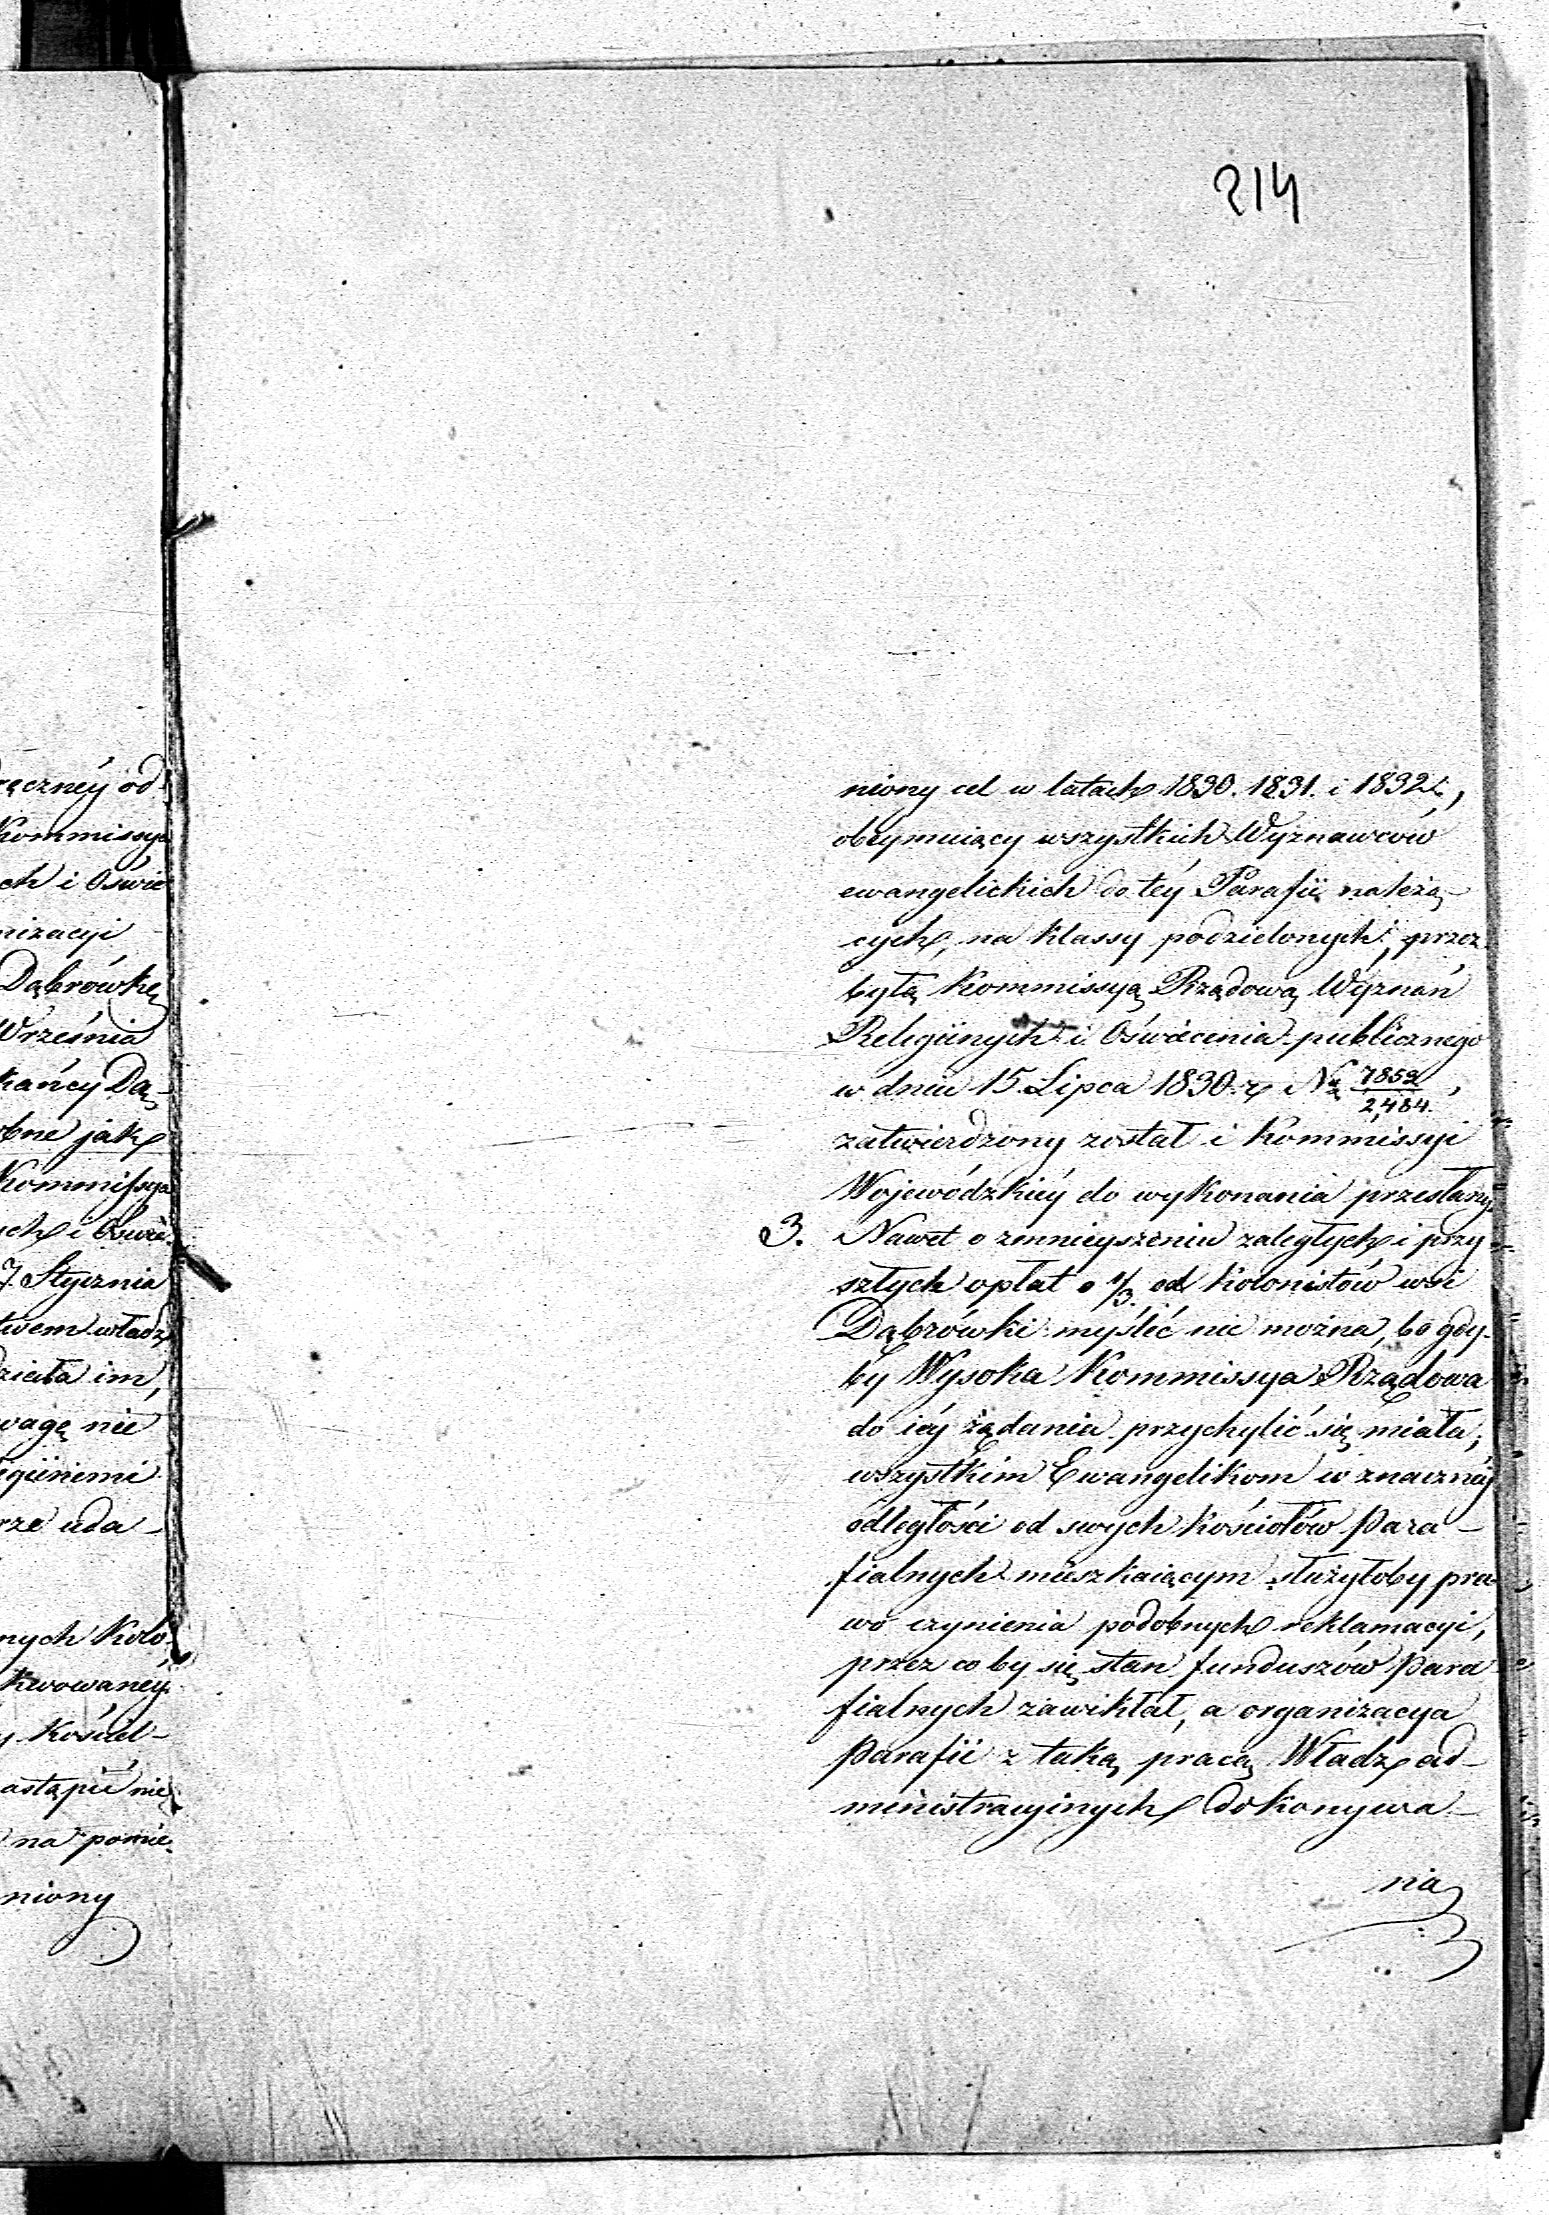 214
ręcznéy od
Kommissya
ch i Oświe
nizacyi
Dąbrówkę
Września
kańcy Dą-
obne jak
Kommissya
ych i Oświe
7. Stycznia
twem władz
dzieła im,
wagę nie
igiinemi
rze uda-
nych Kolo
kwowanéy
y Kościel-
astąpić nie
na pomie-
niony
niony cel w latach 1830. 1831. i 1832.,
obeymuiący wszystkich Wyznawców
ewangelickich do téy Parafii należą-
cych, na klassy podzielonych, przez
byłą Kommissyą Rządową Wyznań
Religiinych i Oświecenia publicznego
w dniu 15. Lipca 1830. r. No 7852/2484.,
zatwierdzony został i Kommissyi
Wojewódzkiéy do wykonania przesłany.
3. Nawet o zmnieyszeniu zaległych i przy-
szłych opłat o 1/3. od Kolonistów wsi
Dąbrówki myśléć nie można, bo gdy-
by Wysoka Kommissya Rządowa
do iéy żądania przychylić się miała;
wszystkim Ewangelikom w znacznéy
odległości od swych kościołów Para-
fialnych mieszkaiącym służyłoby pra-
wo czynienia podobnych reklamacyi,
przez co by się stan funduszów Para
fialnych zawikłał, a organizacya
Parafii z taką pracą Władz ad-
ministracyinych dokonywa-
nia